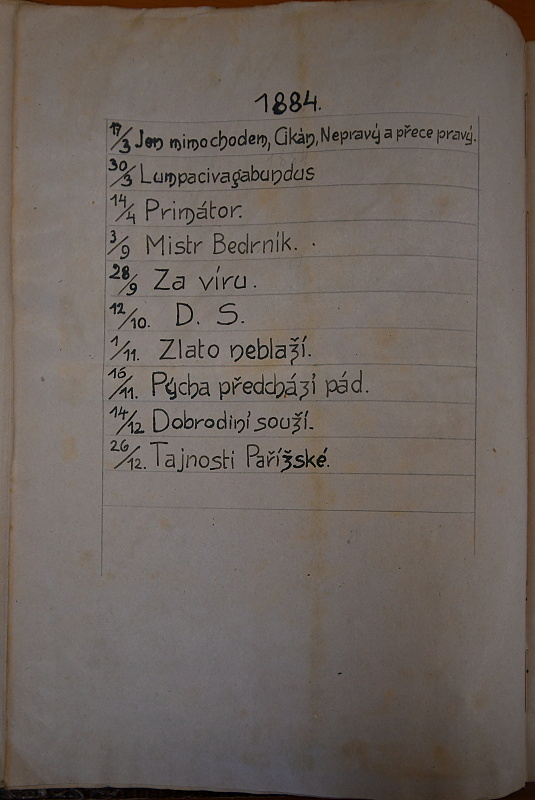 1884.
17/3 Jen mimochodem, Cikán, Nepravý a přece pravý.
30/3 Lumpacivagabundus
14/4 Primátor.
3/9 Mistr Bedrník.
28/9 Za víru.
12/10. D. S.
1/11. Zlato neblaží.
16/11. Pýcha předchází pád.
14/12 Dobrodiní souží.
26/12. Tajnosti Pařížské.